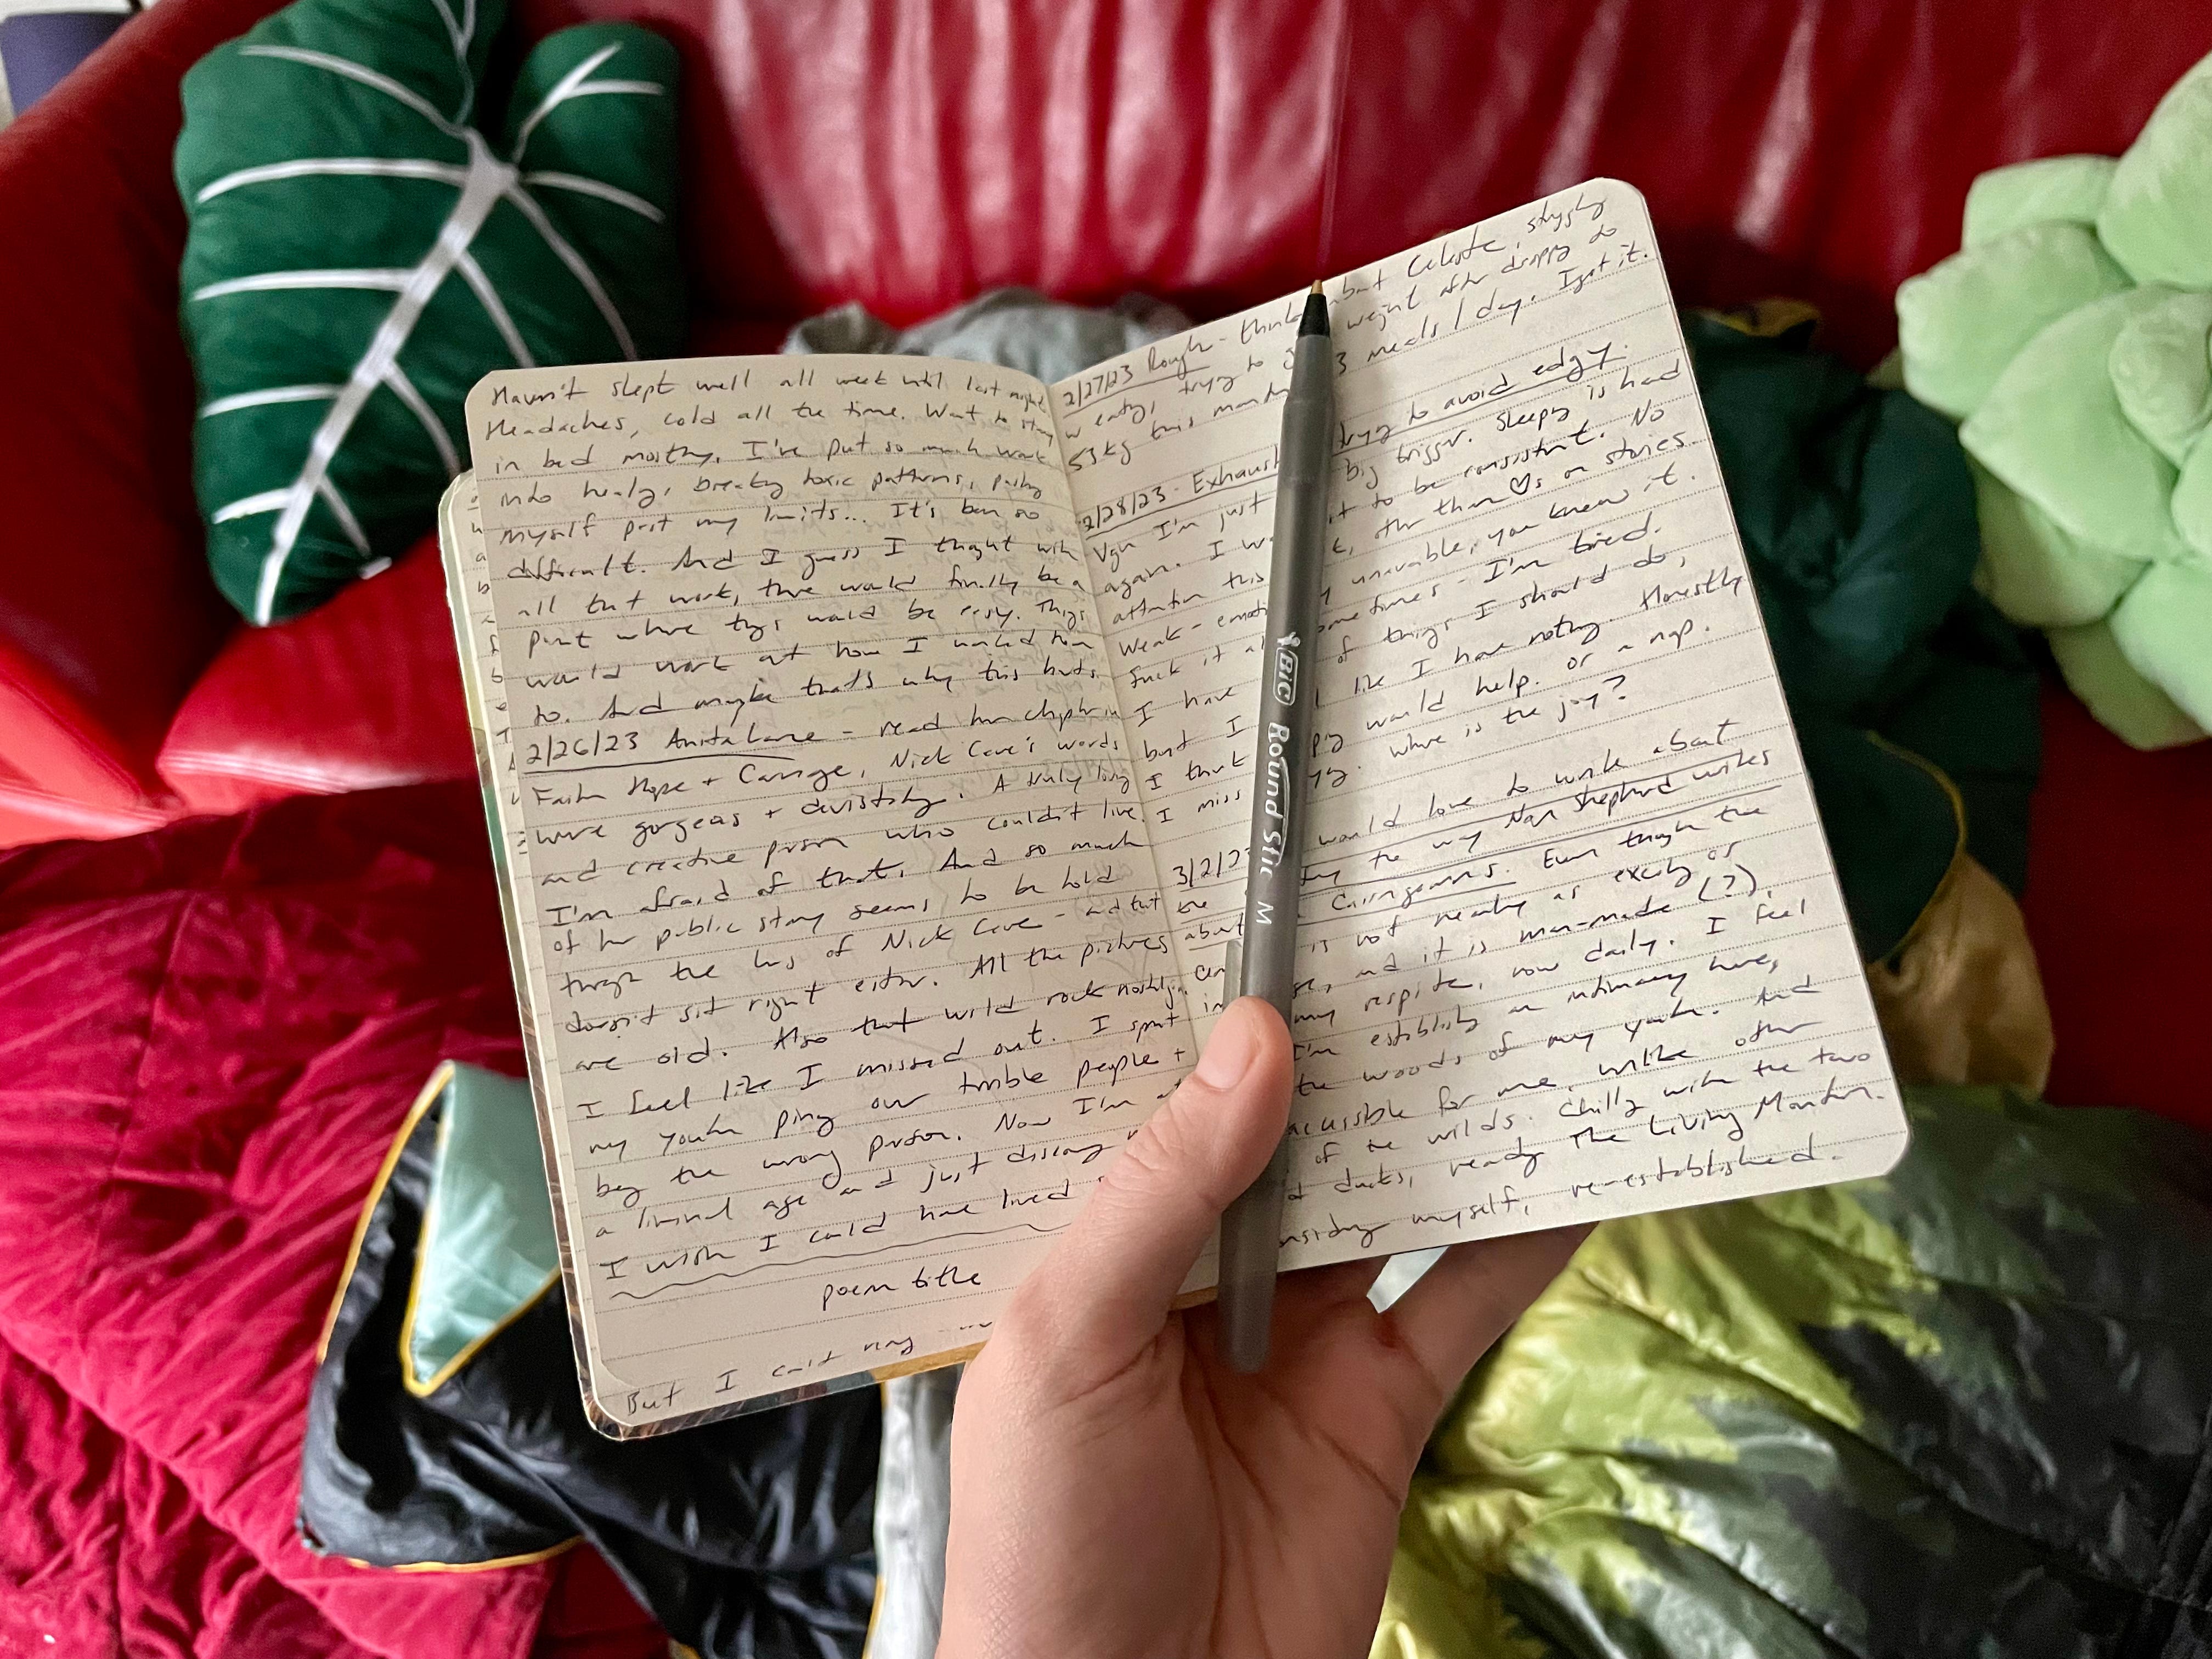 Haven't slept well all week until last night
Headaches, cold all the time. Want to stay
in bed mostly. I've put so much work
into healing, breaking toxic patterns, pushing
myself past my limits... It's been so
difficult. And I guess I thought with
all that work, there would finally be a
point where things would be easy. Things
would work out how I wanted them
to. And maybe that's why this hurts.
2/26/23 Anita Lane - read her chapter in
Faith Hope + Carnage, Nick Cave's words
were gorgeous + devistating. A truly living
and creative person who couldn't live.
I'm afraid of that. And so much
of her public story seems to be held
through the lens of Nick Cave - and that
doesn't sit right either. All the pictures
are old. Also that wild rock nostalgia.
I feel like I missed out. I spent
my youth pining over terrible people +
being the wrong person. Now I'm at
a liminal age and just discovering
I wish I could have lived
poem title
But I can't
2/27/23 Rough - thinking about Celeste, struggling
w eating, trying to weight after dropping to
53 kg this morning 3 meals / day. I got it.
2/28/23 - Exhaust trying to avoid edgy.
I'm just big trigger. Sleeping is hard
again. I it to be consistent. No
attention this other than ♡s on stories.
Weak - emoti unavailable, you know it.
fuck it sometimes - I'm tired.
I have of things I should do,
but I like I have nothing. Honestly
I think would help. or a nap.
I miss Where is the joy?
3/2/23 would love to write about
the the way Nan Shepherd writes
about Cairngorms. Even though the
is not nearly as exciting or
and it is man-made (?),
my respite, now daily. I feel
I'm establishing an intimacy here,
the woods of my youth. And
accessible for me, unlike other
of the wilds. Chilling with the two
ducks, reading The Living Mountain.
myself, re-established.
BIC Round Stic M